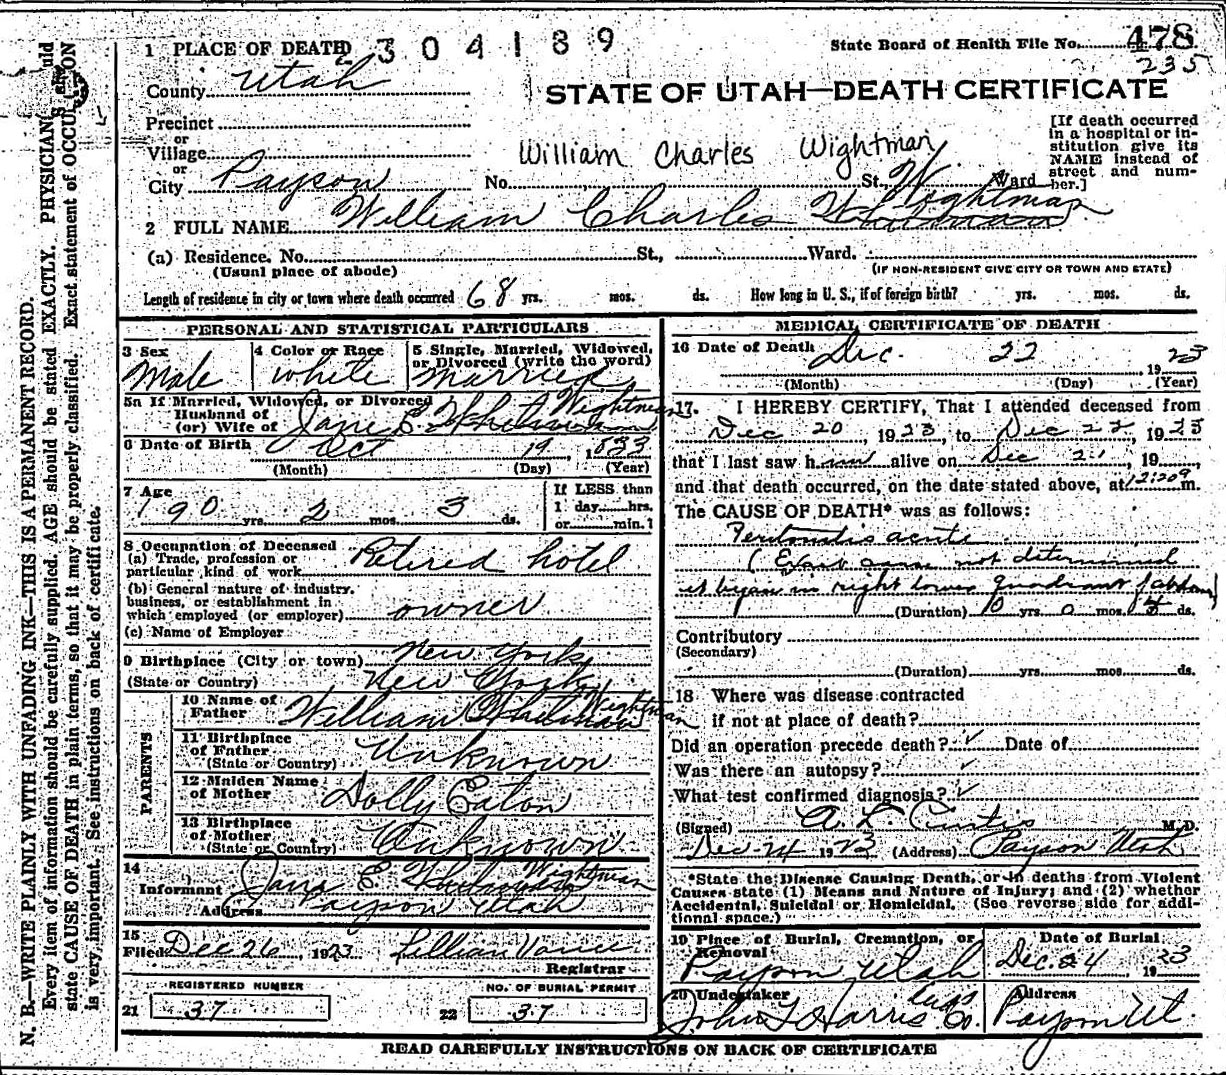 1 PLACE OF DEATH 2304189
State Board of Health File No. 478
235
County Utah
STATE OF UTAH—DEATH CERTIFICATE
Precinct
or
Village
or
City Payson No. St., Ward
William Charles Wightman
[If death occurred
in a hospital or in-
stitution give its
NAME instead of
street and num-
ber.]
2 FULL NAME William Charles Wightman
(a) Residence. No. St., Ward.
(Usual place of abode) (IF NON-RESIDENT GIVE CITY OR TOWN AND STATE)
Length of residence in city or town where death occurred 68 yrs. mos. ds. How long in U. S., if of foreign birth? yrs. mos. ds.
PERSONAL AND STATISTICAL PARTICULARS
3 Sex Male
4 Color or Race White
5 Single, Married, Widowed,
or Divorced (write the word)
Married
5a If Married, Widowed, or Divorced
Husband of
(or) Wife of Jane E. Wightman
6 Date of Birth Oct 19, 1833
(Month) (Day) (Year)
7 Age 90 yrs. 2 mos. 3 ds.
If LESS than
1 day hrs.
or min.
8 Occupation of Deceased
(a) Trade, profession or
particular kind of work Retired hotel
(b) General nature of industry,
business, or establishment in
which employed (or employer) owner
(c) Name of Employer
9 Birthplace (City or town) New York
(State or Country) New York
PARENTS
10 Name of
Father William Wightman
11 Birthplace
of Father
(State or Country) Unknown
12 Maiden Name
of Mother Dolly Eaton
13 Birthplace
of Mother
(State or Country) Unknown
14
Informant Jane E. Wightman
Address Payson Utah
15
Filed Dec 26, 1923 Lillian Vance
Registrar
REGISTERED NUMBER
21 37
NO. OF BURIAL PERMIT
22 37
MEDICAL CERTIFICATE OF DEATH
16 Date of Death Dec. 22 1923
(Month) (Day) (Year)
17. I HEREBY CERTIFY, That I attended deceased from
Dec 20, 1923, to Dec 22, 1923
that I last saw him alive on Dec 21, 19
and that death occurred, on the date stated above, at 12:20 m.
The CAUSE OF DEATH* was as follows:
Peritonitis acute
(Exact cause not determined
it began in right lower quadrant of abdomen)
(Duration) 0 yrs. 0 mos. ds.
Contributory
(Secondary)
(Duration) yrs. mos. ds.
18 Where was disease contracted
if not at place of death?
Did an operation precede death? Date of
Was there an autopsy?
What test confirmed diagnosis?
(Signed) A. L. Curtis M. D.
Dec 24 1923 (Address) Payson Utah
*State the Disease Causing Death, or in deaths from Violent
Causes state (1) Means and Nature of Injury; and (2) whether
Accidental, Suicidal or Homicidal. (See reverse side for addi-
tional space.)
19 Place of Burial, Cremation, or
Removal
Payson Utah
Date of Burial
Dec. 24, 1923
20 Undertaker
John L Harris Co.
Address
Payson Ut.
READ CAREFULLY INSTRUCTIONS ON BACK OF CERTIFICATE
N. B.—WRITE PLAINLY WITH UNFADING INK—THIS IS A PERMANENT RECORD.
Every item of information should be carefully supplied. AGE should be stated EXACTLY. PHYSICIANS should
state CAUSE OF DEATH in plain terms, so that it may be properly classified. Exact statement of OCCUPATION
is very important. See instructions on back of certificate.